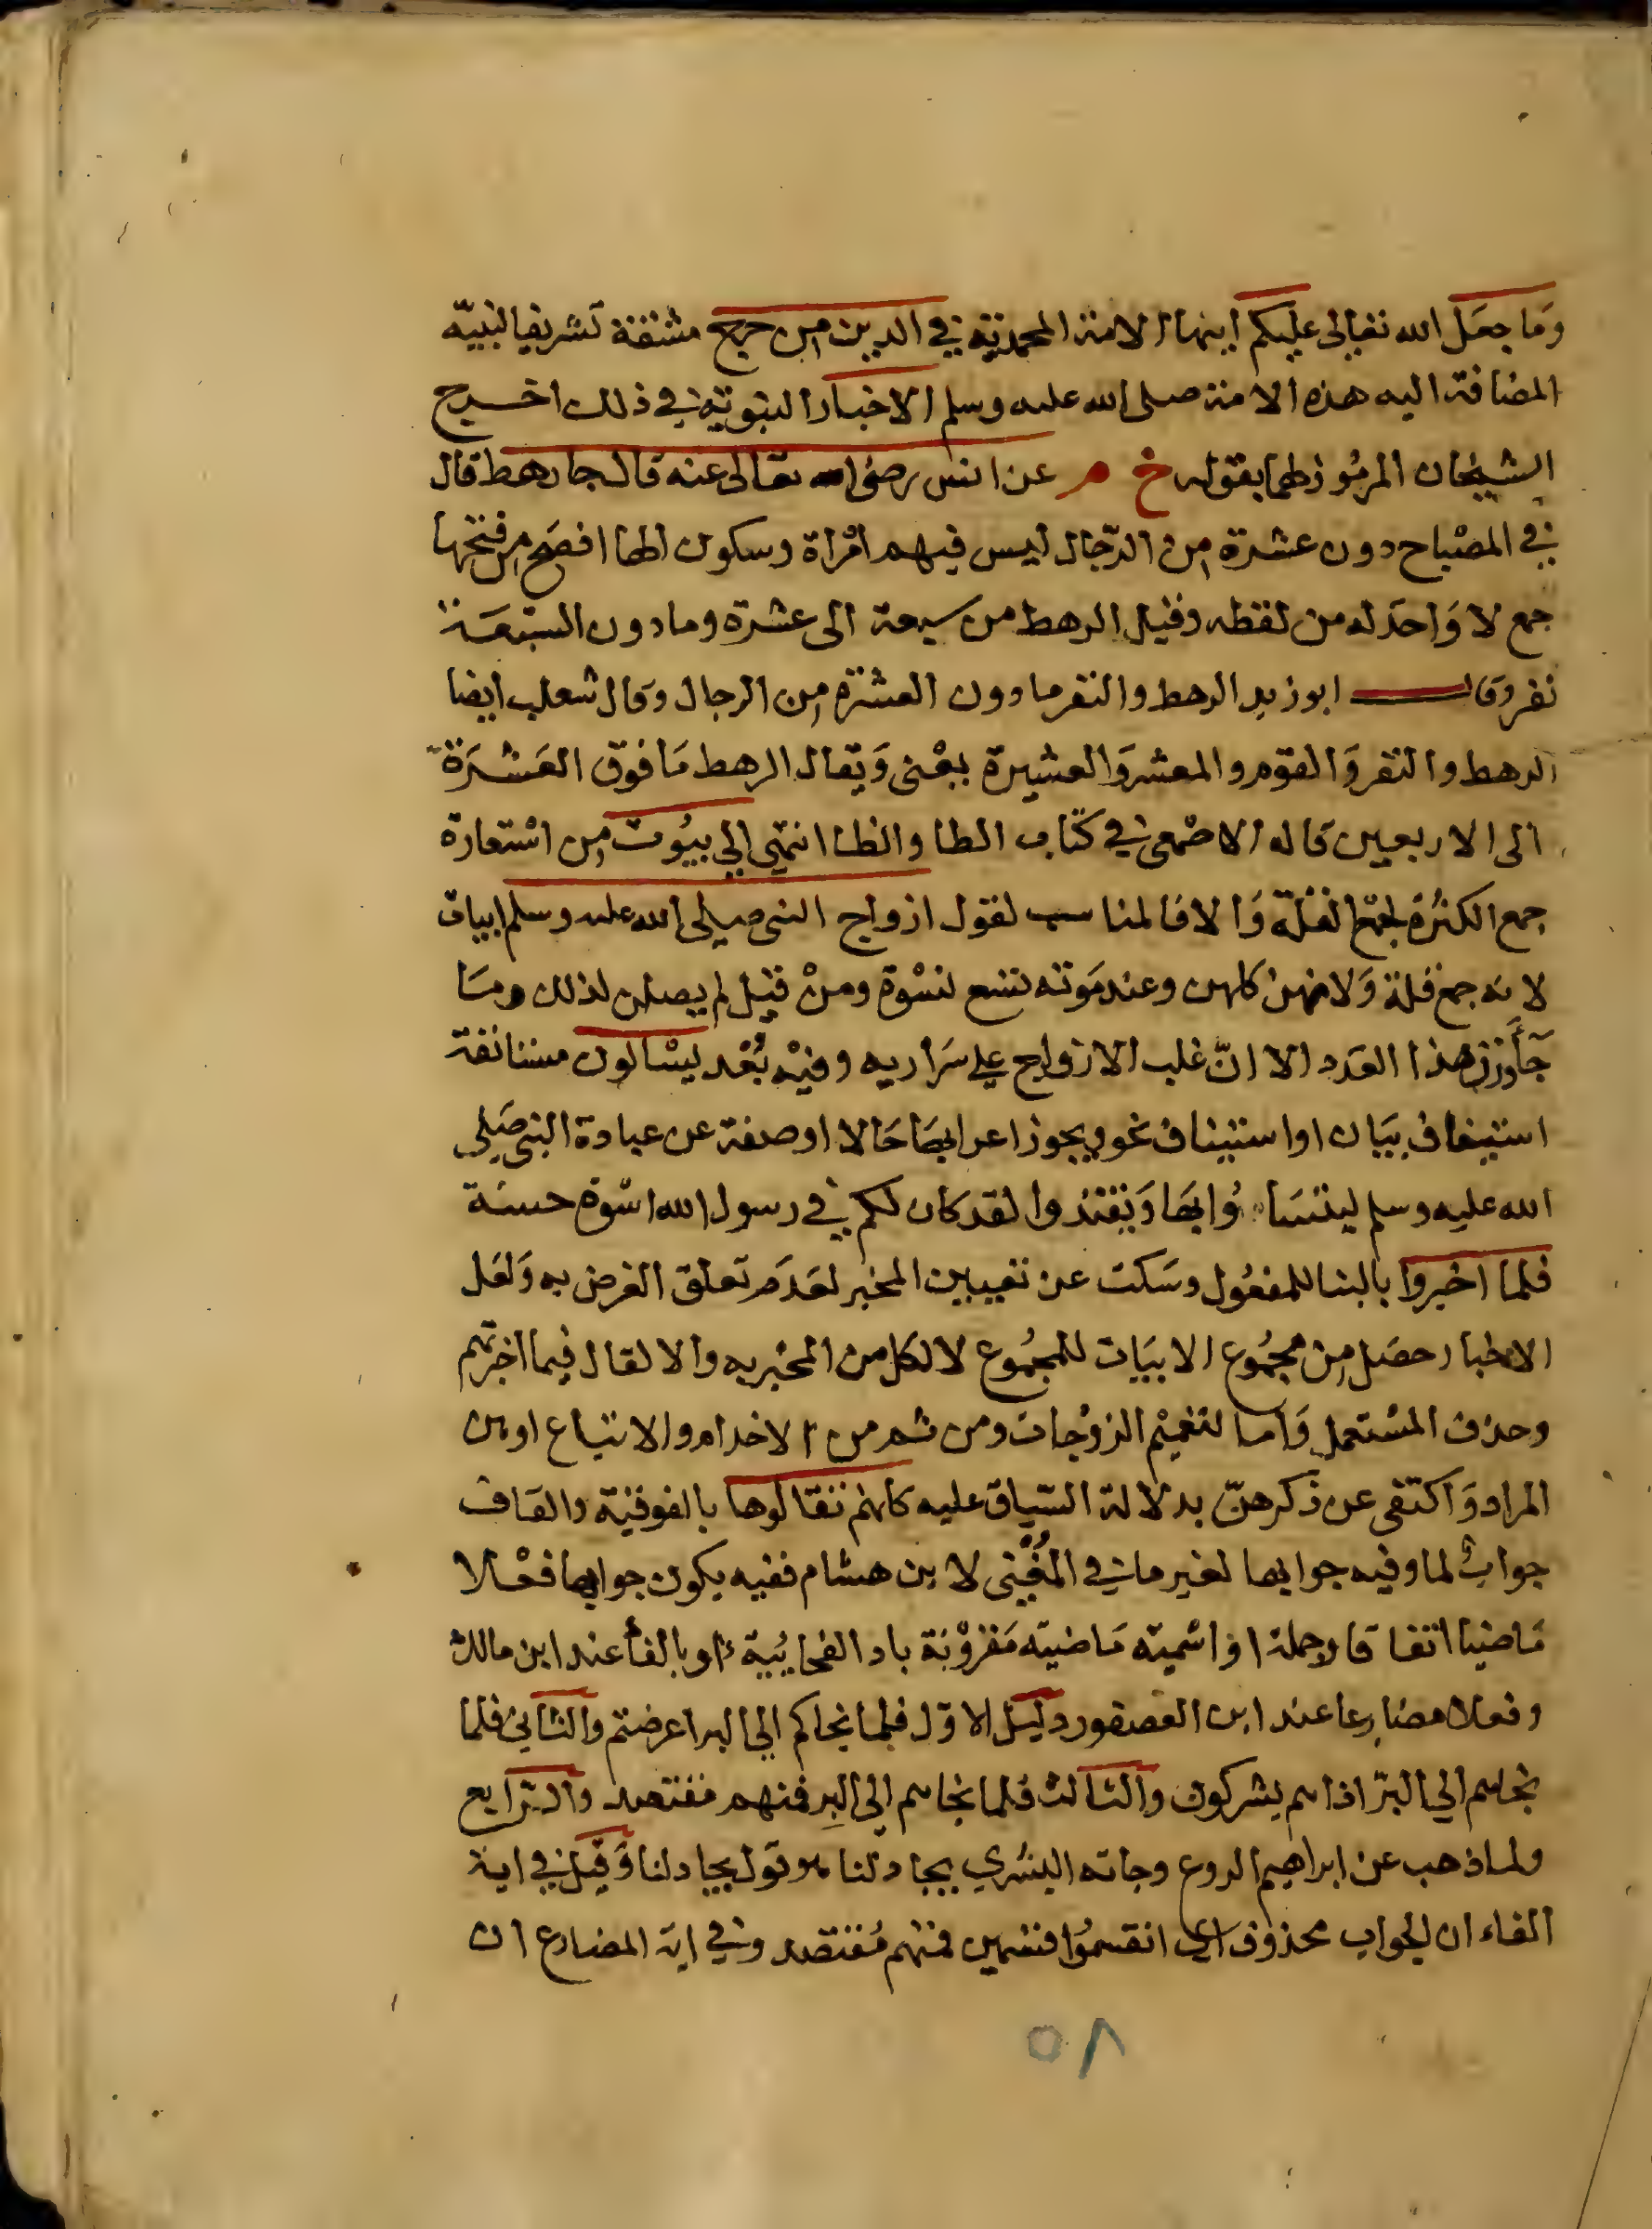 وَما جعَل الله تعالى عليكم ايتها الامة المحمدية في الدين من حرج مشقة تشريفا لنبيّه
المضافة اليه هذه الامة صلى الله عليه وسلم الاخبار النبوية في ذلك اخــرج
الشيخان المرمُوز لهما بقوله خ م عن انس رضى الله تعالى عنه قال جا رهط قال
في المصْباح دون عشرة من الرّجال ليس فيهم امْراة وسكون الها افصَح من فتحها
جمع لا وَاحدَ له من لفظه وقيل الرهط من سبعة الى عشرة وما دون السّبعَة
نفر وقالــــ ابو زيد الرهط والنفر ما دون العشرة من الرجال وقال ثعلب ايضا
الرهط والنفر وَالقوم والمعشر وَالعشيرة بمعْنى وَيقال الرهط مَا فوق العَشْرَة
الى الاربعين قاله الاصْمعى في كتاب الطا والظا انتهى الى بيُوت من اسْتعارة
جمع الكثرة لجمْع القلّة وَالا فالمناسب لقول ازواج النبي صلى الله عليه وسلم ابيات
لانه جمع قلة وَلانهن كلهن وعند مَوته تسع نسْوة ومنْ قبْل لم يصلن لذلك ومَا
جَاوَزن هذا العدد الا انّ غلب الازواج على سَراريه وفيْه بُعْد يسْالون مستانفة
استيناف بيَان او استيناف نحو ويجوز اعرابها حَالا او صفة عن عبادة النبي صَلى
الله عليه وسلم ليتسَاوُا بها وَيقتدوا لقد كان لكم في رسول الله اسْوة حسنة
فلما اخبروا بالبنا للمفعُول وسَكت عن تعيين المخبر لعَدَم تعلق الغرض به وَلعَل
الاخبار حصَل من مجمُوع الابيَات للمجمُوع لا لكل من المخبر به والا لقال فيما اخبرتهم
وحذف المسْتعمل وَاما لتعْميْم الزوْجات ومن ثم من الاخدام والاتباع او هن
المراد وَاكتفى عن ذكرهنّ بدلالة السّياق عليه كانهم تقالوها بالفوقية والقاف
جوابُ لما وفيه جوابها لغير ما في المُغْني لابن هشام ففيه يكون جوابها فعْلا
مَاضيا اتفاقا وجملة اسْميّة مَقرُوْنة باذ الفجائيّة او بالفا عند ابن مالك
وفعلا مضارعا عند ابن العصفور دليل الاوّل فلما نجاكم الى البر اعرضتم والثاني فلما
نجاهم الى البرّ اذا هم يشركون والثالث فلما نجاهم الى البر فمنهم مقتصد والرّابع
ولما ذهب عن ابراهيم الروع وجاته البشرى يجادلنا يجادلنا وَقيل في اية
الفاء ان الجواب محذوف اى انقسمُوا قسمين فمنهم مُقتصد وفي اية المضارع ان
٥٨